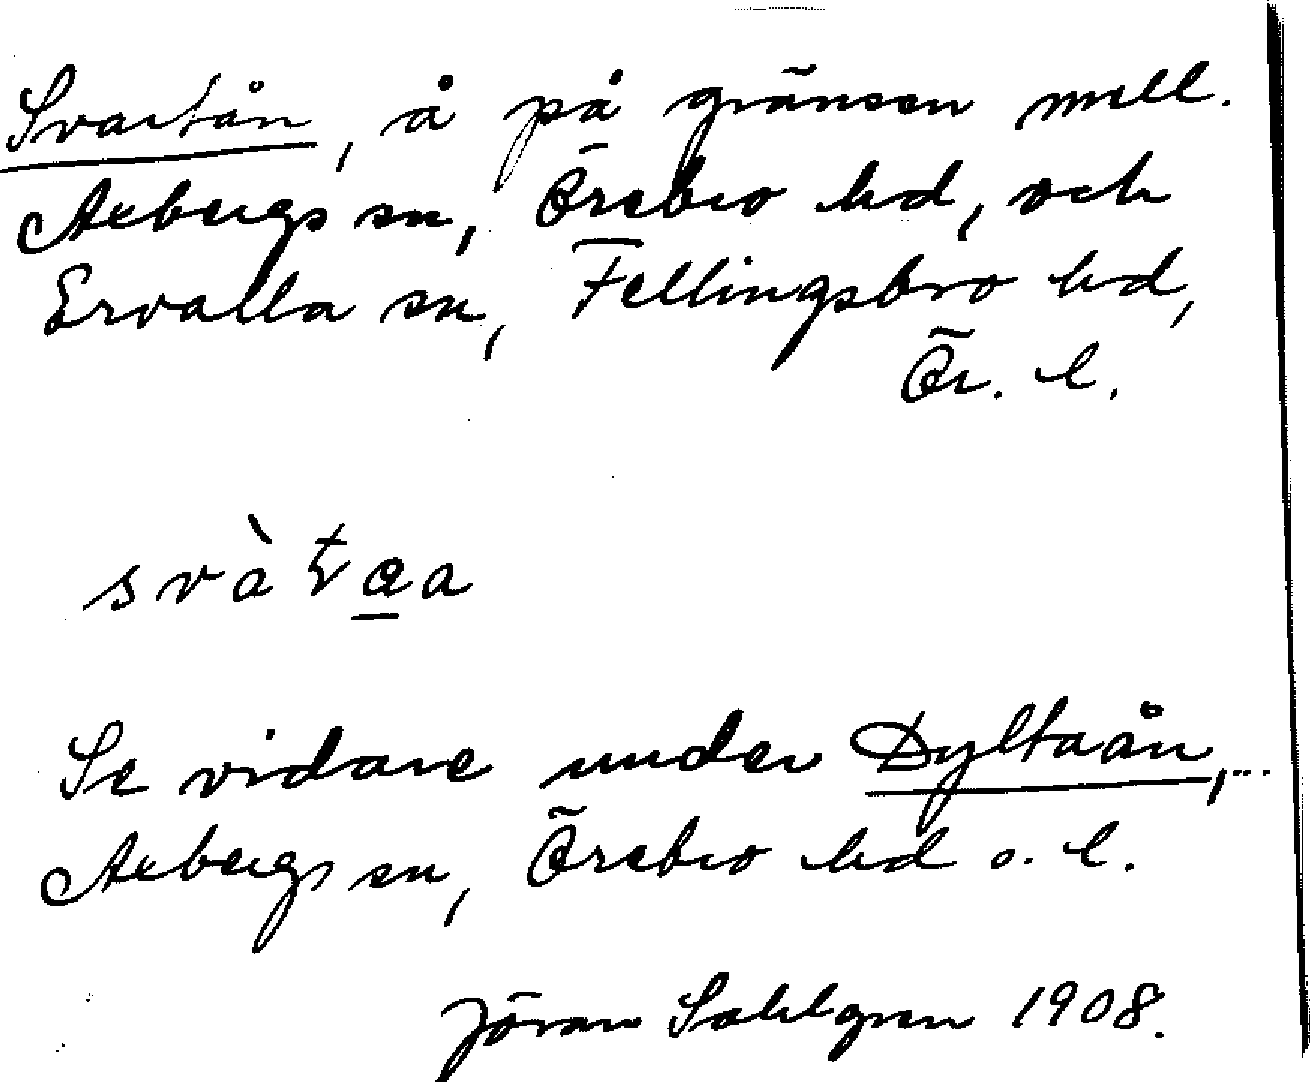 Svartån, å på gränsen mell.
Axbergs sn, Örebro hd, och
Ervalla sn, Fellingsbro hd,
Ör. l.
Se vidare under Dyltaån,...
Axbergs sn, Örebro hd o. l.
Jöran Sahlgren 1908.